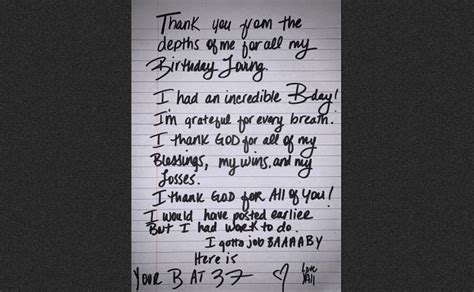 Thank you from the
depths of me for all my
Birthday Loving.
I had an incredible Bday!
I'm grateful for every breath.
I thank GOD for all of my
Blessings, my wins, and my
Losses.
I thank GOD for All of you!
I would have posted earlier
But I had work to do.
I gotta job BAAAABY
Here is
YOUR B AT 37
Love
Y'All